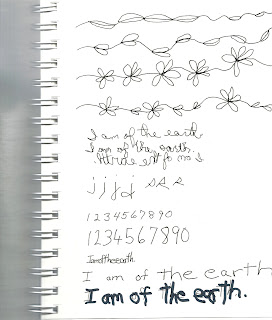 I am of the earth.
I am of the earth.
j j j j
1234567890
1234567890
Iamoftheearth
I am of the earth
I am of the earth.